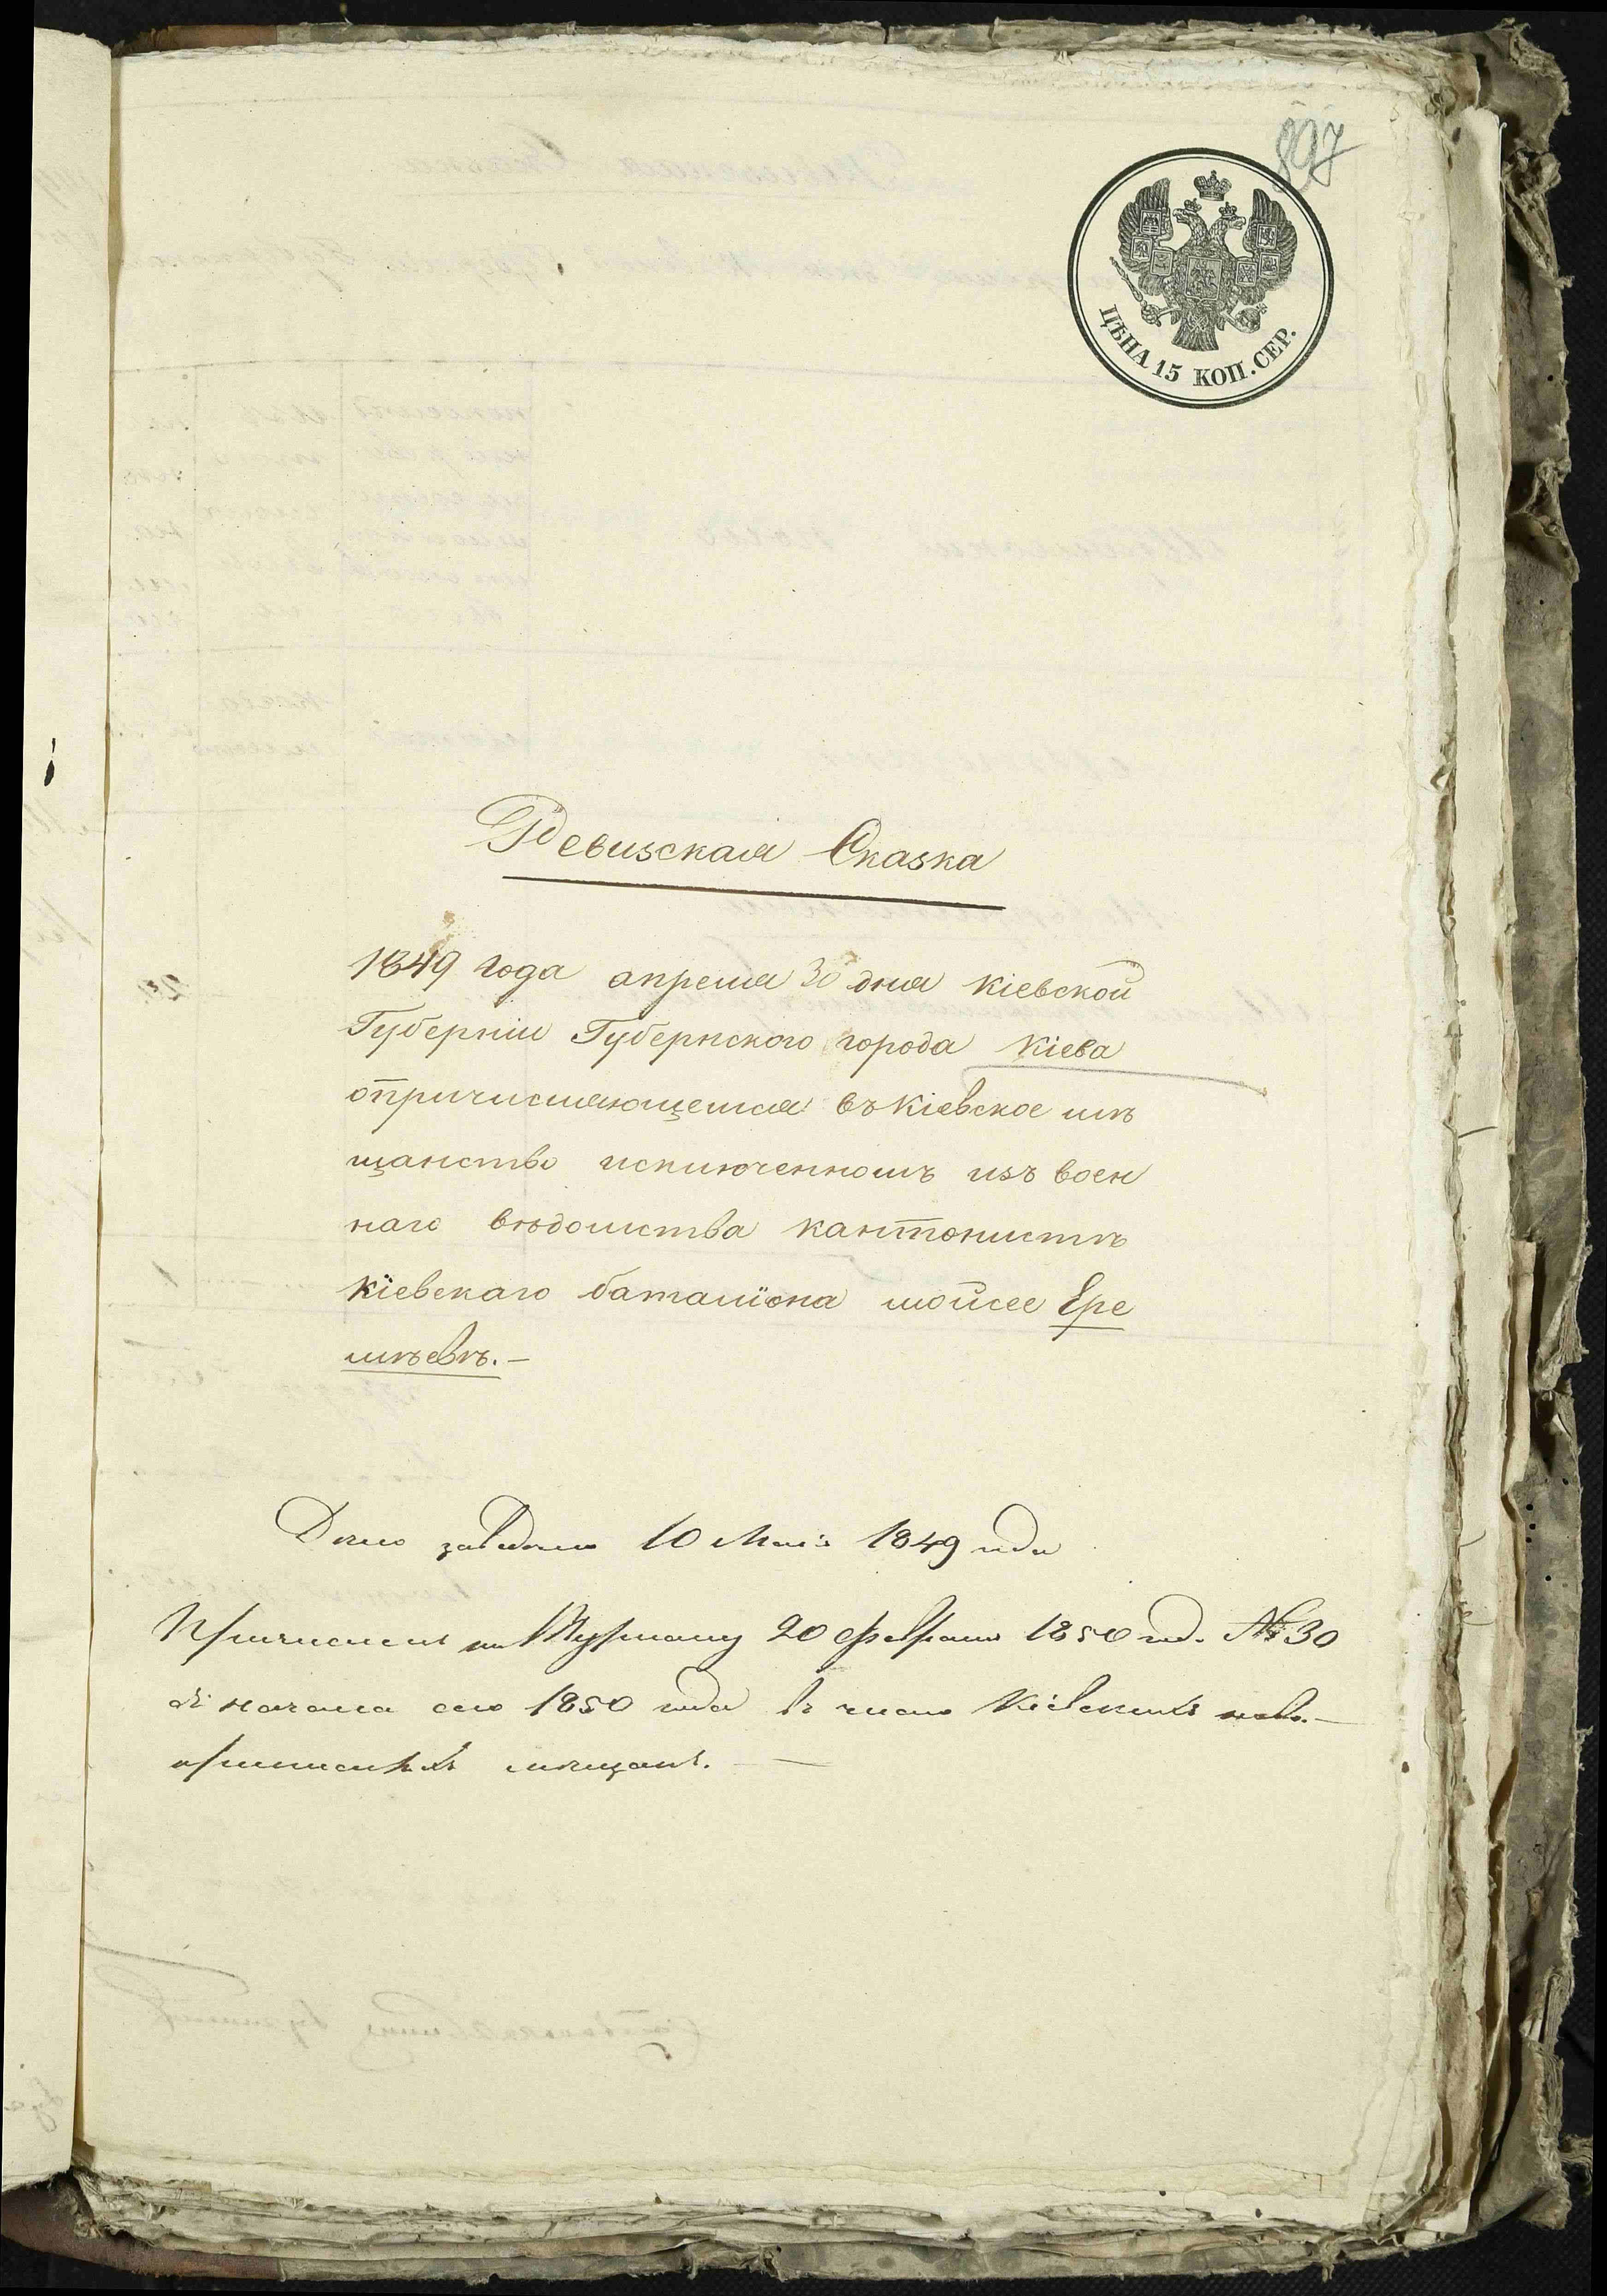 897
ЦѢНА 15 КОП. СЕР.
Ревизская Сказка
1849 года апреля 30 дня Кіевской
Губерніи Губернского города Кіева
опричисляющемся въ Кіевское мѣ
щанство исключенномъ изъ воен
наго вѣдомства кантонистѣ
Кіевскаго баталіона Мойсее Ере
мѣевѣ.—
10 Мая 1849 года
Причислен по Журналу 20 февраля 1850 год. № 30
съ начала сего 1850 года въ число Кіевскихъ ново-
приписныхъ мещанъ.—